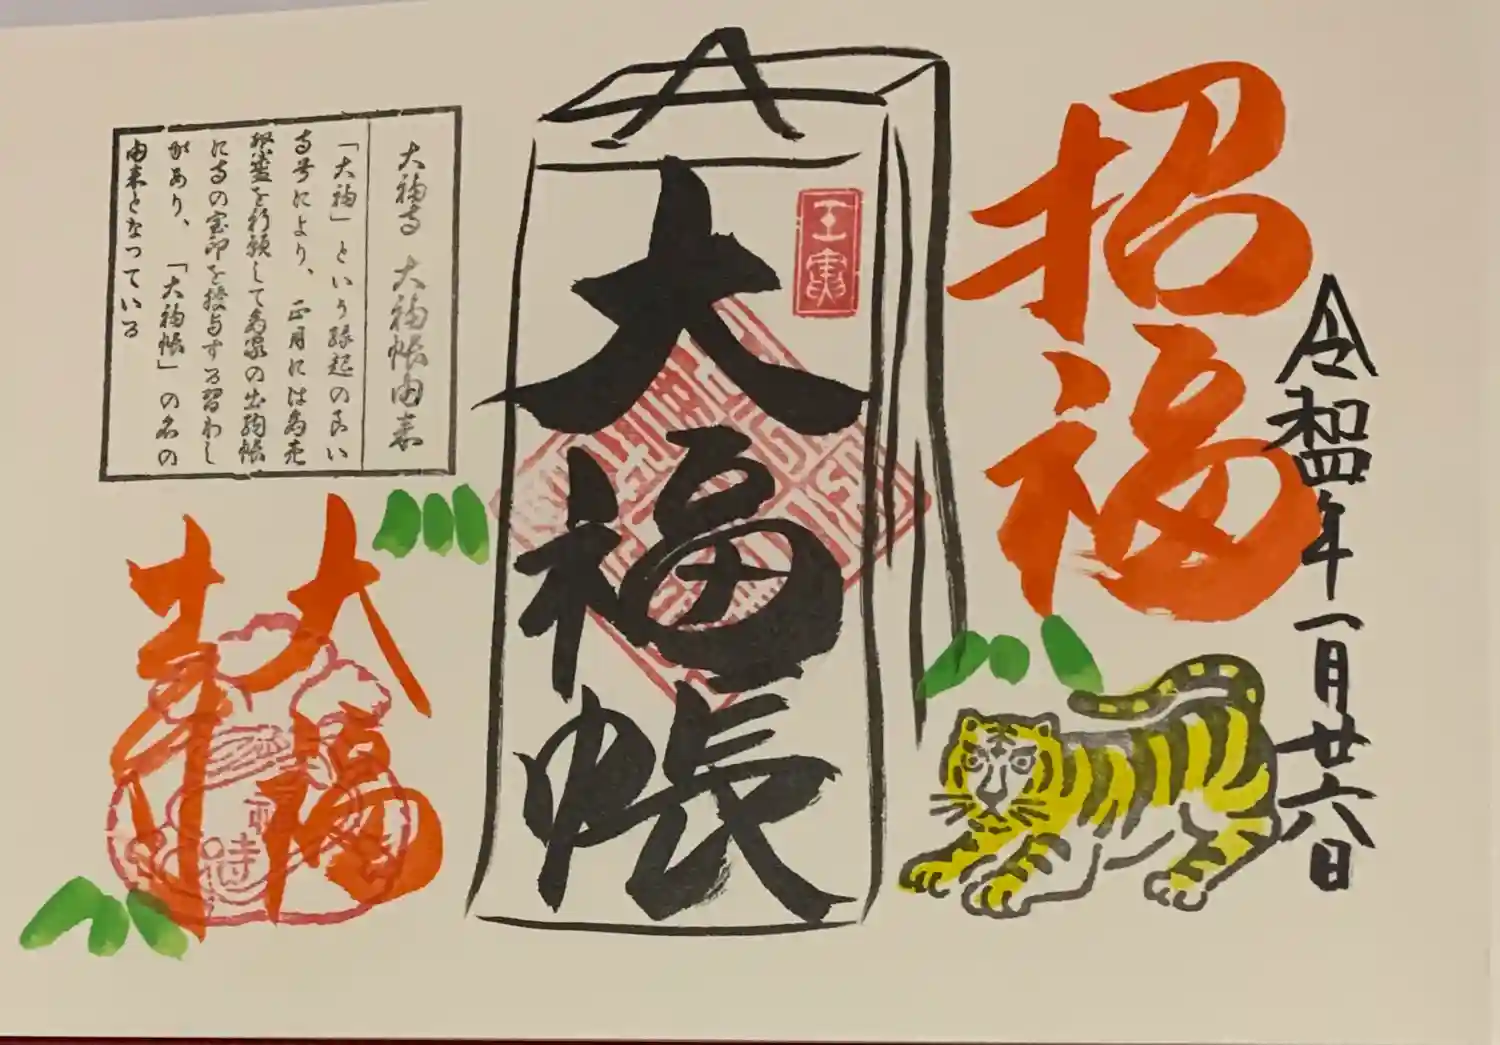 招福
令和四年一月廿六日
大福帳
壬寅
大福寺 大福帳由来
「大福」という縁起の良い
寺号により、正月には商売
繁盛を祈願して商家の出納帳
に寺の宝印を授与する習わし
があり、「大福帳」の名の
由来となっている
大福
寺